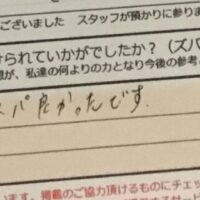 ございました　スタッフが預かりに参りま
けられていかがでしたか？（ズバ
想が、私達の何よりの力となり今後の参考と
スパ良かったです．
います。掲載のご協力頂けるものにチェッ